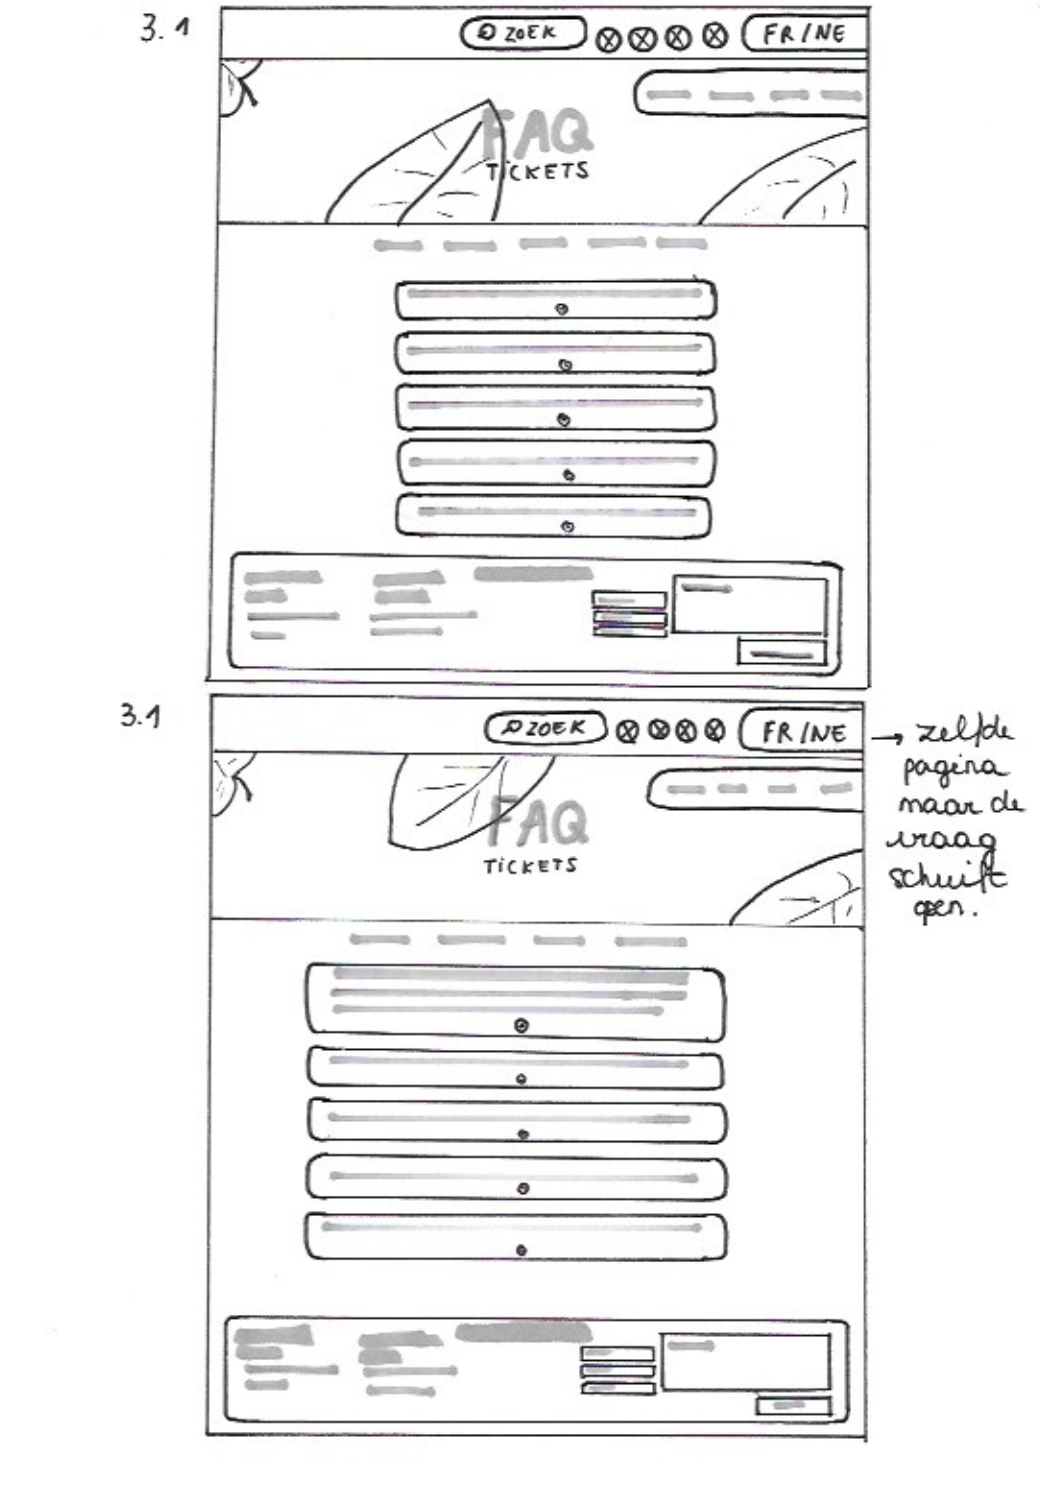 3.1
ZOEK
FR/NE
FAQ
TICKETS
3.1
ZOEK
FR/NE
→ zelfde
pagina
maar de
vraag
schuift
open.
FAQ
TICKETS